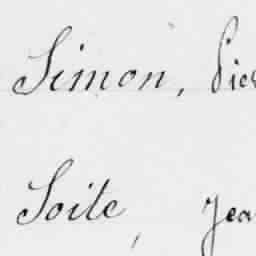 Simon, Pier
Soite, Jea